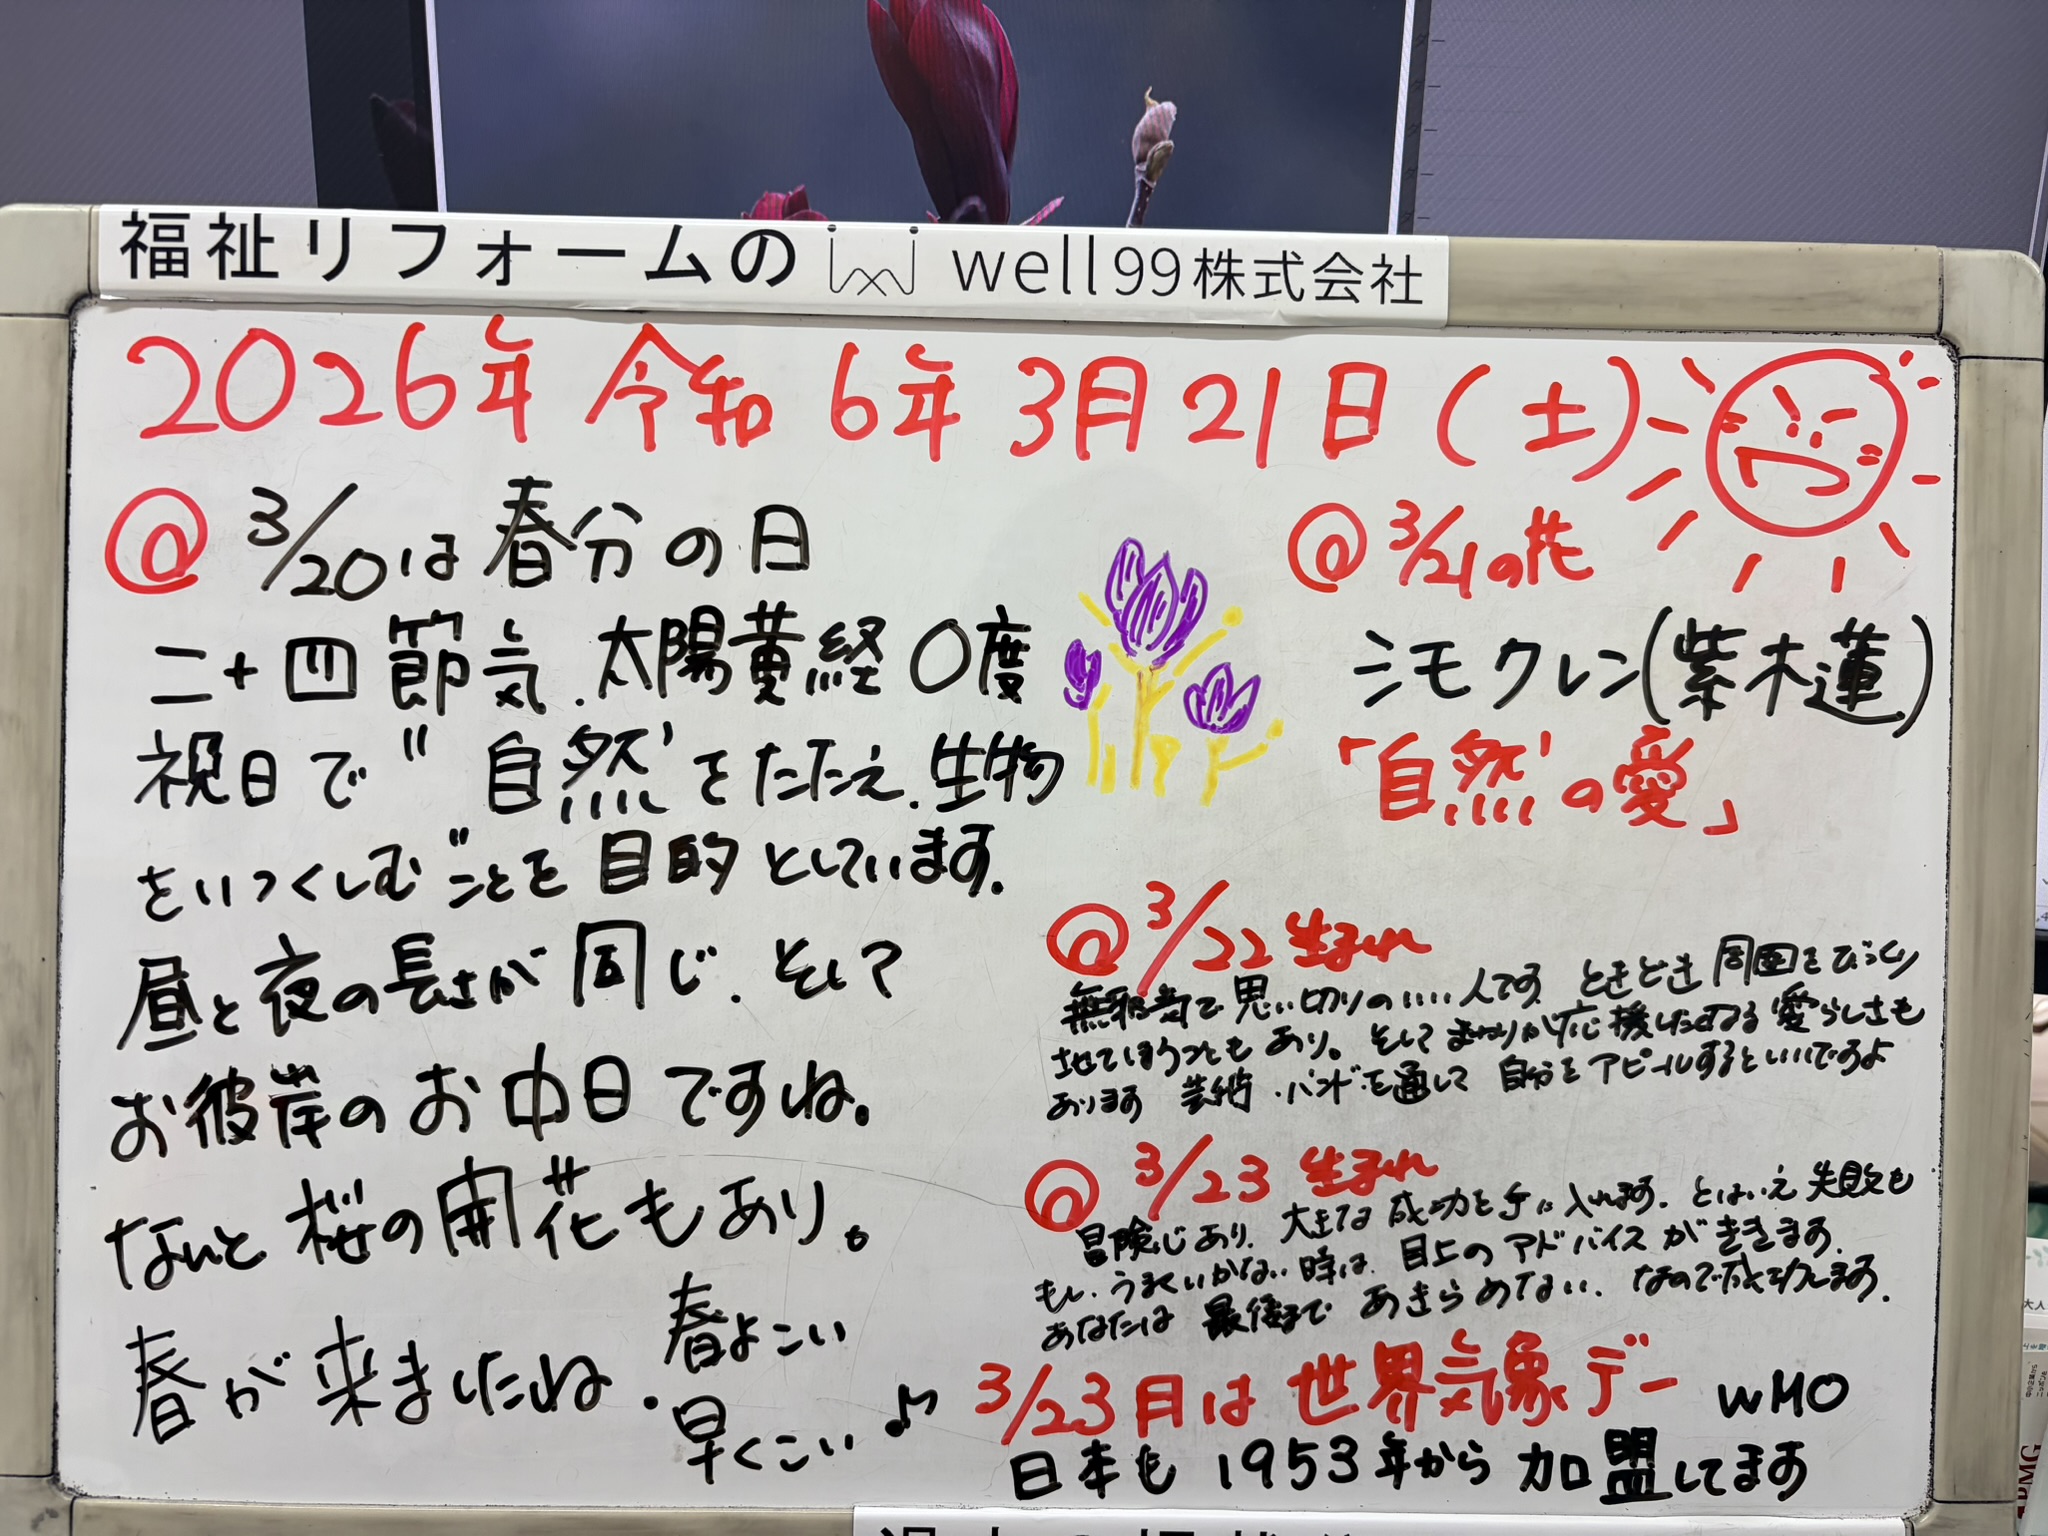 福祉リフォームの well99株式会社
2026年 令和 6年 3月 21日(土)
@ 3/20は春分の日
二十四節気.太陽黄経 0度
祝日で"自然をたたえ.生物
をいつくしむ"ことを目的としています.
昼と夜の長さが同じ.そして
お彼岸のお中日ですね。
なんと桜の開花もあり。
春が来ましたね.
春よこい
早くこい♪
@ 3/21の花
シモクレン(紫木蓮)
「自然の愛」
@ 3/22 生まれ
無邪気で思い切りのいい人です ときどき周囲をびっくり
させてしまうことも あり。そして まわりが応援したくなる愛らしさも
あります 芸術.バンドを通して 自分をアピールするといいですよ
@ 3/23 生まれ
冒険心あり. 大きな成功を手に入れます. とはいえ失敗も
もし.うまくいかない時は.目上のアドバイスがききます.
あなたは 最後まで あきらめない. なので成功します.
3/23月は世界気象デー WMO
日本も 1953年から 加盟してます